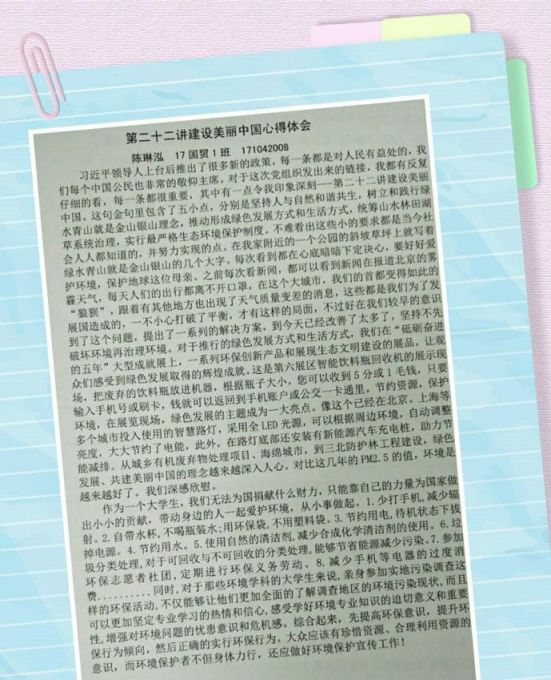 第二十二讲建设美丽中国心得体会
陈琳泓 17国贸1班 171042008
习近平领导人上台后推出了很多新的政策，每一条都是对人民有益处的，我
们每个中国公民也非常的敬仰主席。对于这次党组织发出来的链接，我都有反复
仔细的看，每一条都很重要，其中有一点令我印象深刻---第二十二讲建设美丽
中国。这句金句里包含了五小点，分别是坚持人与自然和谐共生，树立和践行绿
水青山就是金山银山理念，推动形成绿色发展方式和生活方式，统筹山水林田湖
草系统治理，实行最严格生态环境保护制度。不难看出这些小的要求都是当今社
会人人都知道的，并努力实现的点。在我家附近的一个公园的斜坡草坪上就写着
绿水青山就是金山银山的几个大字。每次看到都在心底暗暗下定决心，要好好爱
护环境，保护地球这位母亲。之前每次看新闻，都可以看到新闻在报道北京的雾
霾天气，每天人们的出行都离不开口罩，在这个大城市，我们的首都变得如此的
“狼狈”，跟着有其他地方也出现了天气质量变差的消息，这些都是我们为了发
展国造成的，一不小心打破了平衡，才有这样的局面，不过好在我们较早的意识
到了这个问题，提出了一系列的解决方案，到今天已经改善了太多了，坚持不先
破坏环境再治理环境。对于推行的绿色发展方式和生活方式，我们在“砥砺奋进
的五年”大型成就展上，一系列环保创新产品和展现生态文明建设的展品，让观
众们感受到绿色发展取得的辉煌成就。这是第六展区智能饮料瓶回收机的展示现
场，把废弃的饮料瓶放进机器，根据瓶子大小，您可以收到5分或1毛钱，只要
输入手机号或刷卡，钱就可以返回到手机账户或公交一卡通里。节约资源，保护
环境，在展览现场，绿色发展的主题成为一大亮点。像这个已经在北京、上海等
多个城市投入使用的智慧路灯，采用全LED光源，可以根据周边环境，自动调整
亮度，大大节约了电能，此外，在路灯底部还安装有新能源汽车充电桩，助力节
能减排。从城乡有机废弃物处理项目、海绵城市，到三北防护林工程建设，绿色
发展、共建美丽中国的理念越来越深入人心。对比这几年的PM2.5的值，环境是
越来越好了。我们深感欣慰。
作为一个大学生，我们无法为国捐献什么财力，只能靠自己的力量为国家做
出小小的贡献，带动身边的人一起爱护环境，从小事做起。1.少打手机，减少辐
射。2.自带水杯，不喝瓶装水:用环保袋，不用塑料袋。3.节约用电，待机状态下拔
掉电源。4.节约用水。5.使用自然的清洁剂，减少合成化学清洁剂的使用。6.垃
圾分类处理，对于可回收与不可回收的分类处理，能够节省能源减少污染。7.参加
环保志愿者社团，定期进行环保义务劳动。8.减少手机等电器的过度消
费..........同时，对于那些环境学科的大学生来说，亲身参加实地污染调查这
样的环保活动，不仅能够让他们更加全面的了解调查地区的环境污染现状，而且
可以更加坚定专业学习的热情和信心，感受学好环境专业知识的迫切意义和重要
性，增强对环境问题的忧患意识和危机感。综合起来，先提高环保意识，提升环
保行为倾向，然后正确的实行环保行为。大众应该有珍惜资源、合理利用资源的
意识，而环境保护者不但身体力行，还应做好环境保护宣传工作！